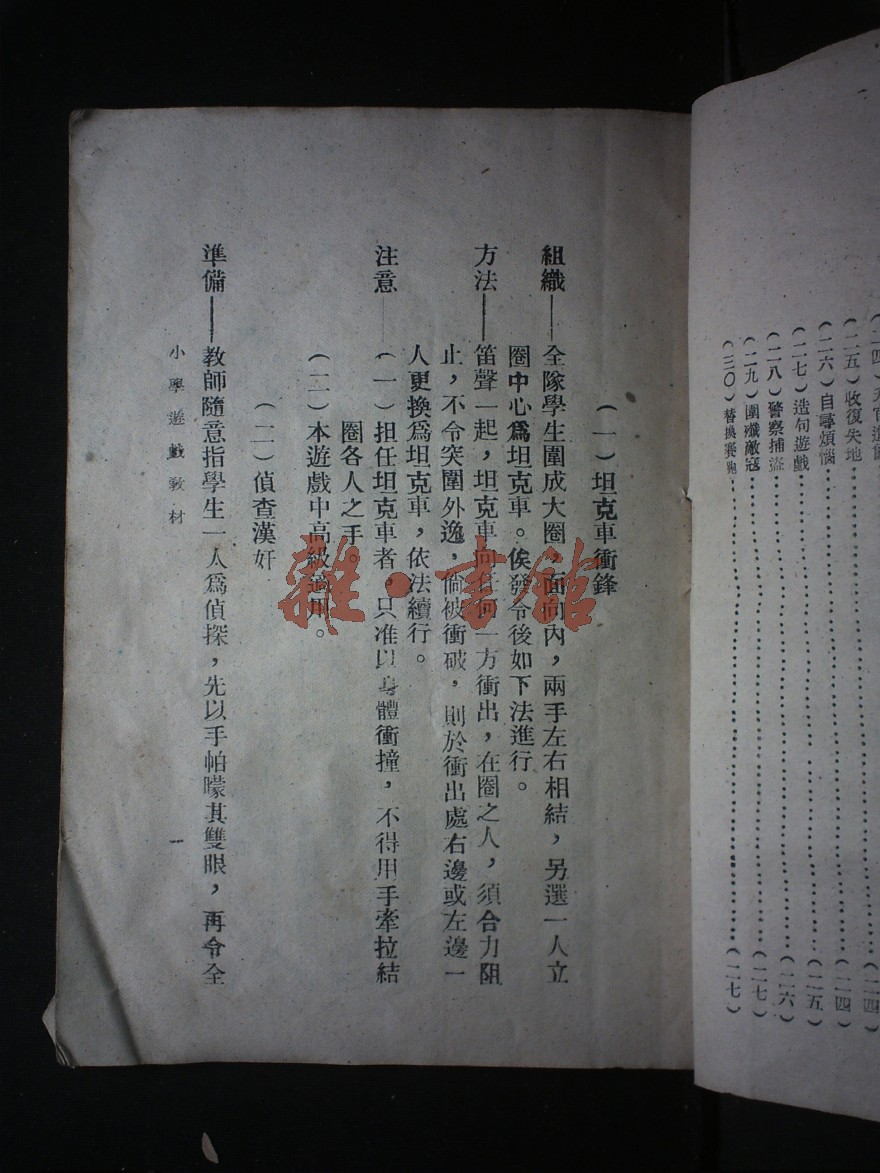 (二五)收復失地………(二四)
(二六)自尋煩惱………(二四)
(二七)造句遊戲………(二五)
(二八)警察捕盜………(二六)
(二九)圍殲敵寇………(二七)
(三〇)替換賽跑………(二七)
(一)坦克車衝鋒
組織——全隊學生圍成大圈,面向內,兩手左右相結,另選一人立
圈中心爲坦克車。俟發令後如下法進行。
方法——笛聲一起,坦克車向任何一方衝出,在圈之人,須合力阻
止,不令突圍外逸,倘被衝破,則於衝出處右邊或左邊一
人更換爲坦克車,依法續行。
注意——(一)担任坦克車者,只准以身體衝撞,不得用手牽拉結
圈各人之手。
(二)本遊戲中高級適用。
(二)偵查漢奸
準備——教師隨意指學生一人爲偵探,先以手帕矇其雙眼,再令全
小學遊戲教材 一
雜·書館